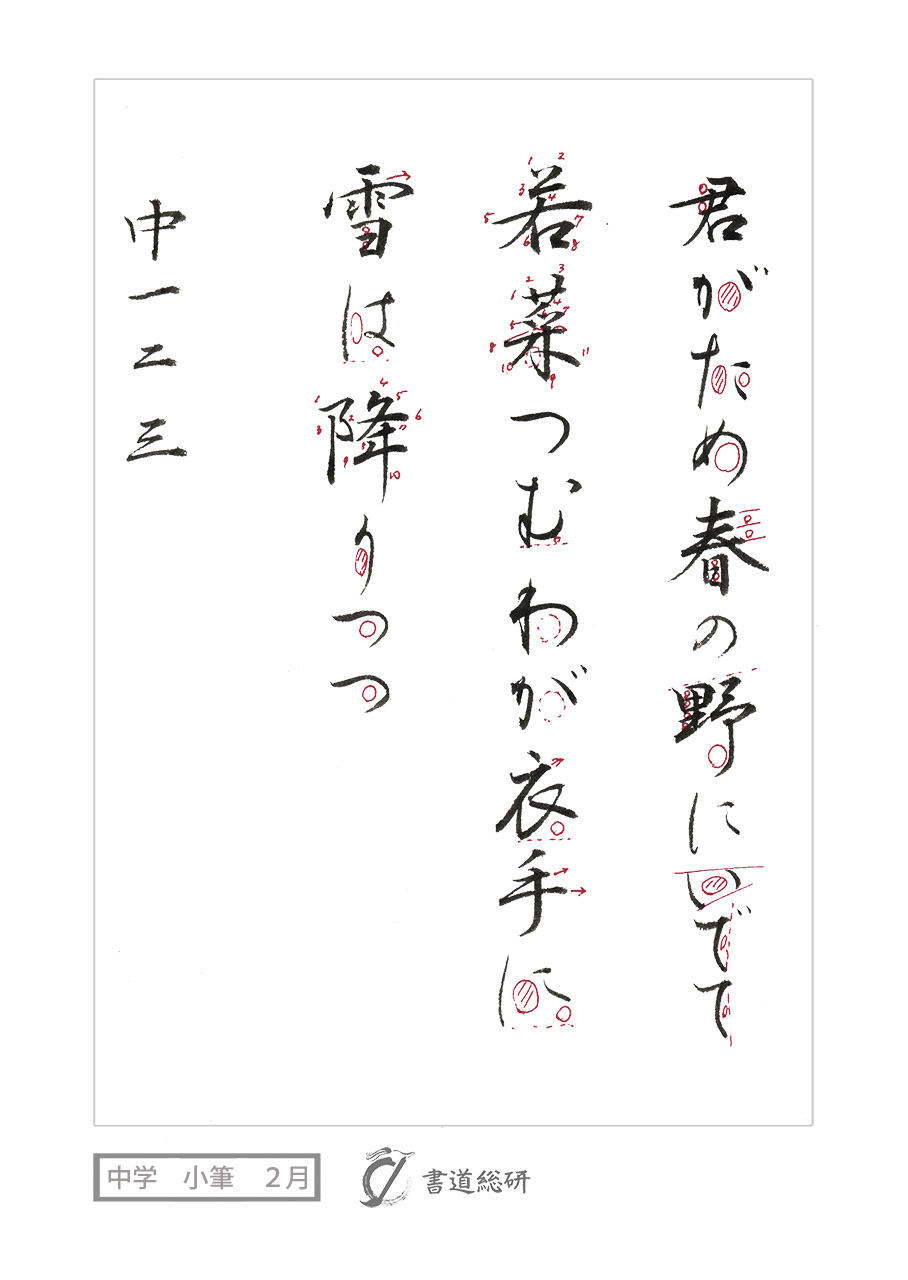 君がため春の野にいでて
若菜つむわが衣手に
雪は降りつつ
中一二三
中学　小筆　２月
書道総研